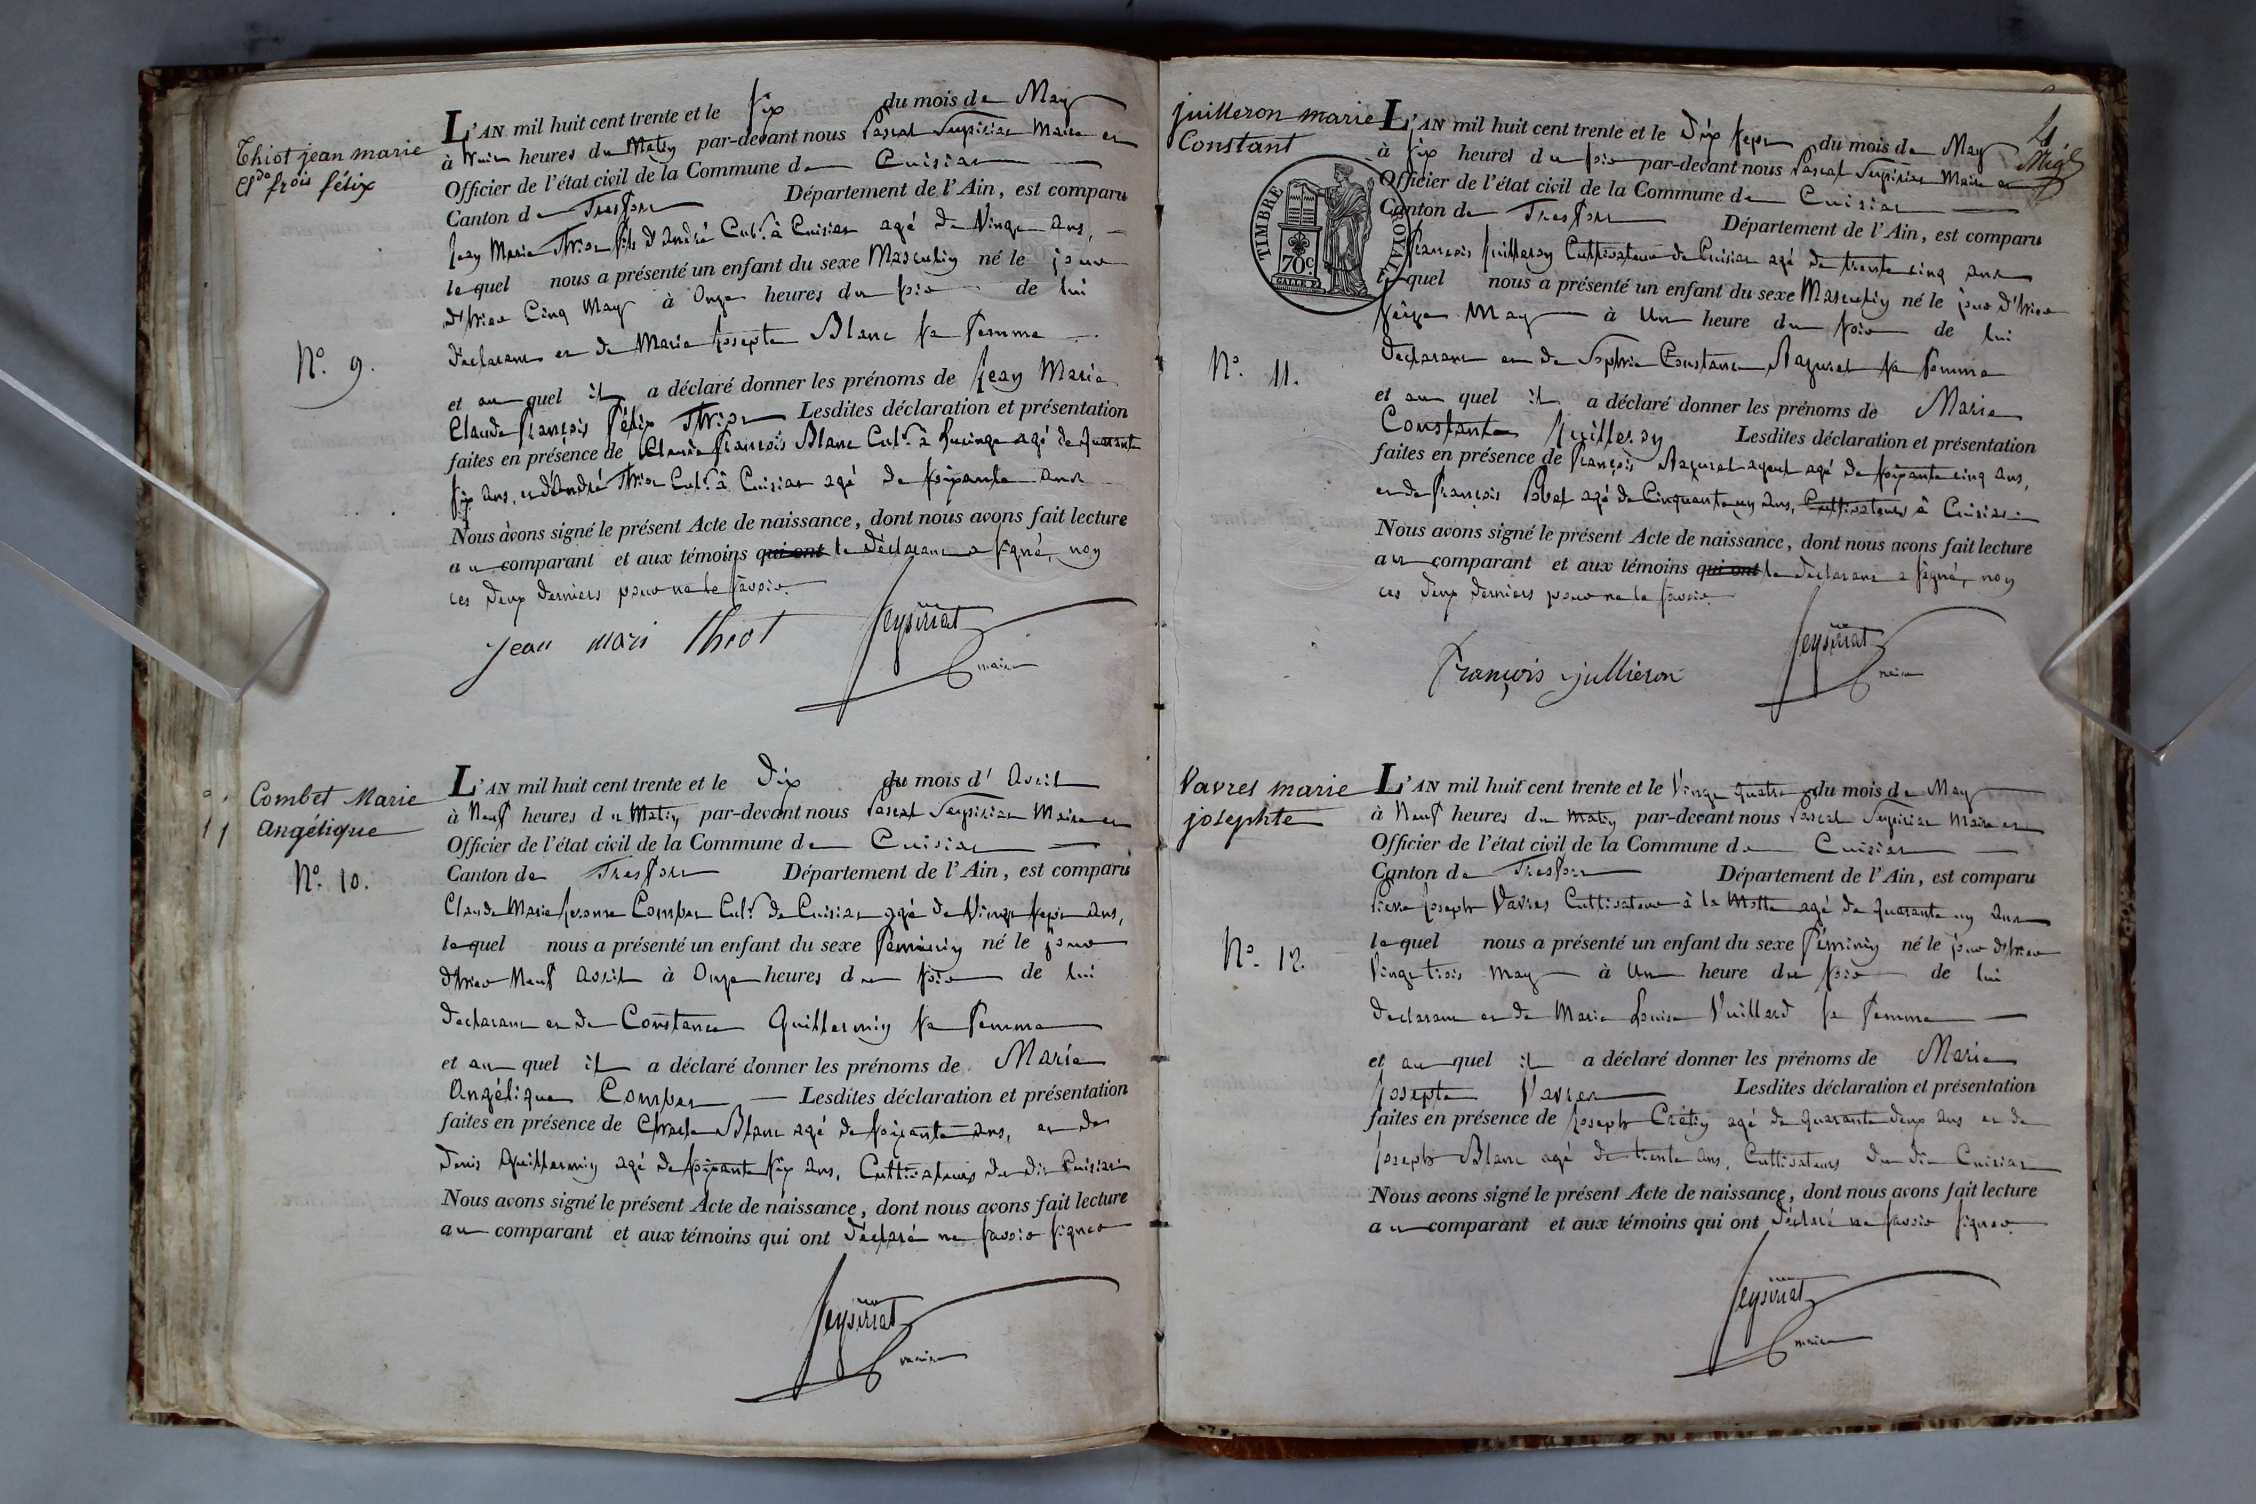 Thiot jean marie
Cl.de frois félix
N.o 9.
L'AN mil huit cent trente et le six du mois de May
à huit heures du Matin par-devant nous Pascal Seysiriat Maire et
Officier de l'état civil de la Commune de Cuisiat
Canton de Treffort Département de l'Ain, est comparu
Jean Marie Thiot fils d'André Cult.r à Cuisiat agé de Vingt ans,
lequel nous a présenté un enfant du sexe Masculin né le jour
d'hier Cinq May à Onze heures du soir de lui
déclarant et de Marie Josepte Blanc sa femme
et au quel il a déclaré donner les prénoms de Jean Marie
Claude François Félix Thiot Lesdites déclaration et présentation
faites en présence de Claude François Blanc Cult.r à agé de quarante
six ans, et d'André Thiot Cult.r à Cuisiat agé de soixante ans
Nous avons signé le présent Acte de naissance, dont nous avons fait lecture
au comparant et aux témoins qui ont le déclarant a signé, non
ces deux derniers pour ne le savoir.
Jean mari thiot Seysiriat
maire
Combet Marie
Angélique
N.o 10.
L'AN mil huit cent trente et le Dix du mois d'Avril
à Neuf heures du Matin par-devant nous Pascal Seysiriat Maire et
Officier de l'état civil de la Commune de Cuisiat
Canton de Treffort Département de l'Ain, est comparu
Claude Marie Combet Cult.r de Cuisiat agé de Vingt sept ans,
lequel nous a présenté un enfant du sexe féminin né le jour
d'hier Neuf Avril à Onze heures du soir de lui
déclarant et de Constance Guillermin sa femme
et au quel il a déclaré donner les prénoms de Marie
Angélique Combet Lesdites déclaration et présentation
faites en présence de Charle Blanc agé de soixante ans, et de
Denis Guillermin agé de soixante six ans, Cultivateurs du dit Cuisiat
Nous avons signé le présent Acte de naissance, dont nous avons fait lecture
au comparant et aux témoins qui ont déclaré ne savoir signer
Seysiriat
maire
4
juilleron marie
Constant
TIMBRE ROYAL
70c.
N.o 11.
L'AN mil huit cent trente et le Dix sept du mois de May
à six heures du soir par-devant nous Pascal Seysiriat Maire et
Officier de l'état civil de la Commune de Cuisiat
Canton de Treffort Département de l'Ain, est comparu
François Juilleron Cultivateur de Cuisiat agé de trente cinq ans
lequel nous a présenté un enfant du sexe Masculin né le jour d'hier
seize May à Une heure du soir de lui
déclarant et de Sophie Constance Nazuret sa femme
et au quel il a déclaré donner les prénoms de Marie
Constant Juilleron Lesdites déclaration et présentation
faites en présence de François Nazuret ayeul agé de soixante cinq ans,
et de François agé de Cinquante un ans, Cultivateurs à Cuisiat
Nous avons signé le présent Acte de naissance, dont nous avons fait lecture
au comparant et aux témoins qui ont le déclarant a signé, non
ces deux derniers pour ne le savoir.
François jullieron Seysiriat
maire
Vavres marie
josephte
N.o 12.
L'AN mil huit cent trente et le Vingt quatre du mois de May
à Neuf heures du matin par-devant nous Pascal Seysiriat Maire et
Officier de l'état civil de la Commune de Cuisiat
Canton de Treffort Département de l'Ain, est comparu
Pierre Joseph Vavres Cultivateur à la Motte agé de quarante un ans
lequel nous a présenté un enfant du sexe féminin né le jour d'hier
Vingt trois May à Une heure du soir de lui
déclarant et de Marie Louise Vuillard sa femme
et au quel il a déclaré donner les prénoms de Marie
Josepte Vavres Lesdites déclaration et présentation
faites en présence de Joseph Crétin agé de quarante deux ans et de
Joseph Blanc agé de trente ans, Cultivateurs du dit Cuisiat
Nous avons signé le présent Acte de naissance, dont nous avons fait lecture
au comparant et aux témoins qui ont déclaré ne savoir signer.
Seysiriat
maire